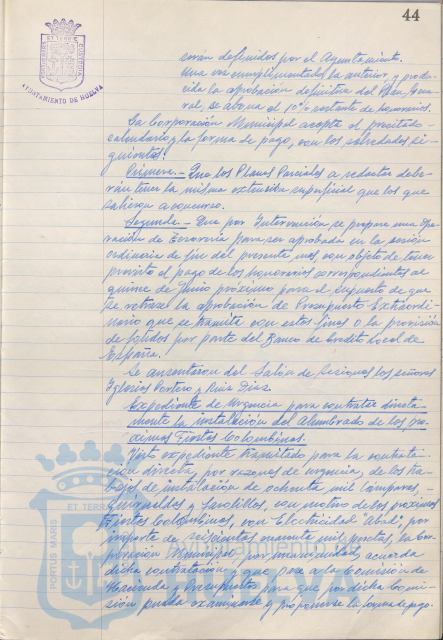 44
AYUNTAMIENTO DE HUELVA
serán definidos por el Ayuntamiento.
Una vez cumplimentado lo anterior, y produ-
cida la aprobación definitiva del Plan Gene-
ral, se abona el 10% restante de honorarios.
La Corporación Municipal acepta el precitado
calendario y la forma de pago, con las salvedades si-
guientes:
Primera.- Que los Planes Parciales a redactar debe-
rán tener la misma extensión superficial que los que
salieron a concurso.
Segunda.- Que por Intervención se prepare una Ope-
ración de Tesorería para ser aprobada en la sesión
ordinaria de fin del presente mes, con objeto de tener
previsto el pago de los honorarios correspondientes al
quince de Junio próximo para el supuesto de que
se retrase la aprobación de Presupuesto Extraordi-
nario que se tramita con estos fines o la provisión
de fondos por parte del Banco de Crédito Local de
España.
Se ausentaron del Salón de Sesiones los señores
Yglesias Portero y Ruiz Díaz.
Expediente de Urgencia para contratar directa-
mente la instalación del Alumbrado de las pró-
ximas Fiestas Colombinas.
Visto expediente tramitado para la contrata-
ción directa, por razones de urgencia, de los tra-
bajos de instalación de ochenta mil lámparas,
guirnaldas y farolillos, con motivo de las próximas
Fiestas Colombinas, con Electricidad Abril, por
importe de seiscientas mil pesetas, la Cor-
poración Municipal, por unanimidad, acuerda
dicha contratación y que pase a la Comisión de
Hacienda y Presupuestos para que por dicha Comi-
sión pueda examinarse y proponerse la forma de pago.
PORTUS MARIS
ET TERRE
HUELVA